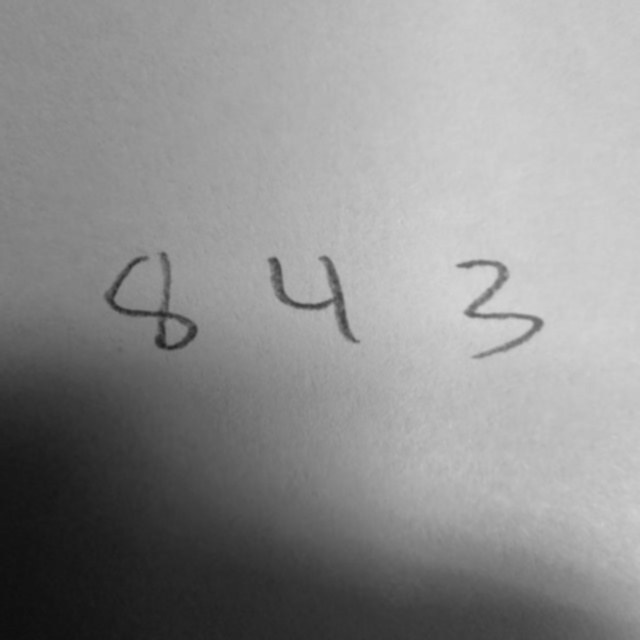 8 4 3